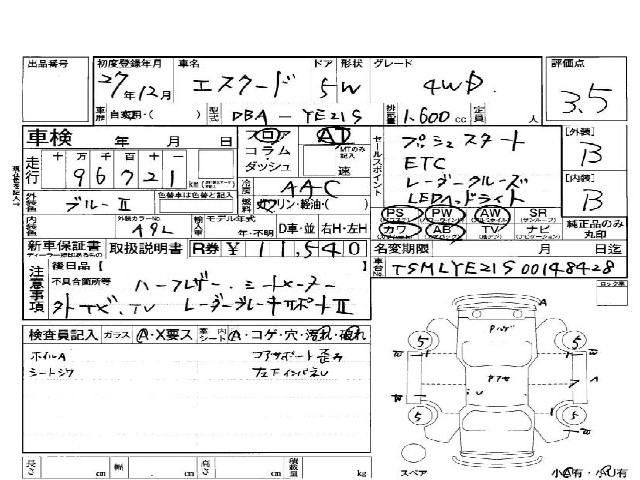 出品番号 初度登録年月 車名 ドア 形状 グレード 評価点
27年12月 エスクード 5 W 4WD 3.5
車歴 自家用・( ) 型式 DBA-YE21S 排気量 1.600cc 定員 人
車検 年 月 日 フロア AT セールスポイント プッシュスタート [外装]
コラム MTのみ記入 ETC B
走行 十万千百十一 96721 km ダッシュ 速 レーダークルーズ [内装]
冷房 AAC LEDヘッドライト B
外装色 ブルーⅡ 色替車は色替と記入 燃料 ガソリン・軽油・( ) PS PW AW SR
内装色 外装カラーNo A9L 輸入車 モデル年式 年・不明 D車・並 右H・左H カワ AB TV ナビ 純正品のみ丸印
新車保証書 取扱説明書 R券 ¥11,540 名変期限 月 日迄
ディーラー捺印あるもの
車台No TSMLYE21S00148428
注意事項 後日品【 】
不具合箇所等 ハーフレザーシート×ヒーター
外TX、TV レーダーブレーキサポートⅡ
ロック車
検査員記入 ガラス A・X要ス 車内シート A・コゲ・穴・汚れ・破れ
ホイルA コアサポート歪み
シートシワ 左下インパネU
A
5 5
W W
U
7 A
5 5
W W
長さ cm 幅 cm 高さ cm 積載量 kg スペア 小A有・小U有